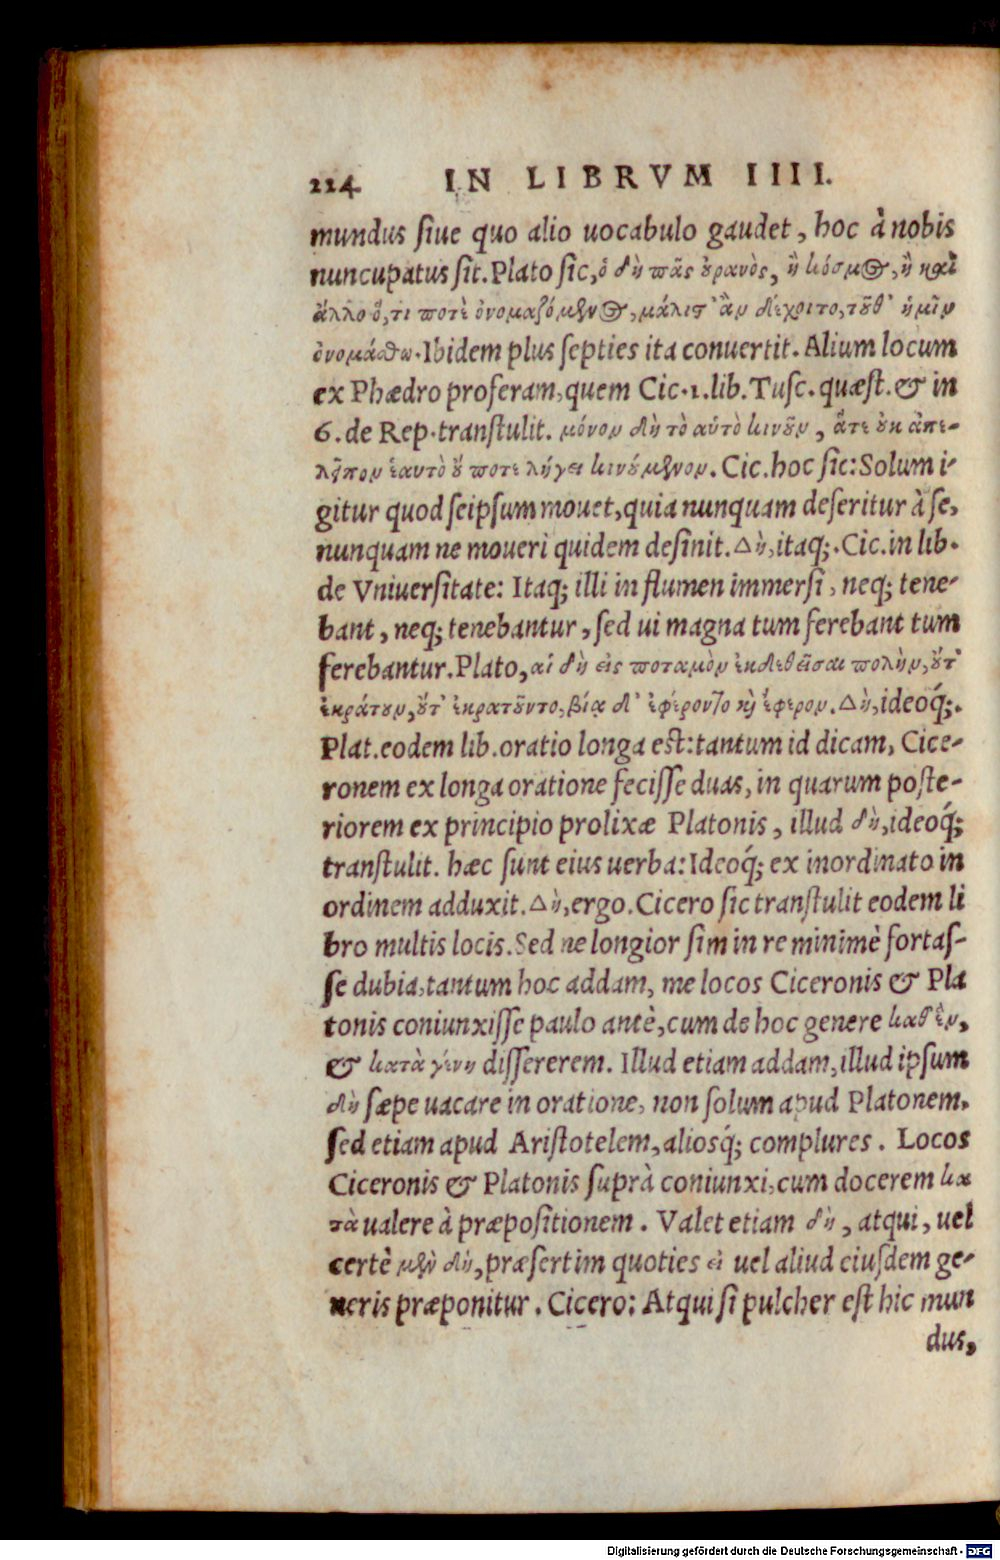 224 IN LIBRVM IIII.
mundus siue quo alio uocabulo gaudet, hoc à nobis
nuncupatus sit. Plato sic, ὁ δὴ πᾶς οὐρανὸς, ἢ κόσμος, ἢ καὶ
ἄλλο ὅ,τι ποτὲ ὀνομαζόμενος, μάλιστ' ἂν δέχοιτο, τοῦθ' ἡμῖν
ὀνομάσθω. Ibidem plus septies ita conuertit. Alium locum
ex Phædro proferam, quem Cic. 1. lib. Tusc. quæst. & in
6. de Rep. transtulit. μόνον δὴ τὸ αὐτὸ κινοῦν, ἅτε οὐκ ἀπε-
λεῖπον ἑαυτὸ οὔ ποτε λήγει κινούμενον. Cic. hoc sic: Solum i-
gitur quod seipsum mouet, quia nunquam deseritur à se,
nunquam ne moueri quidem desinit. Δὴ, itaq;. Cic. in lib.
de Vniuersitate: Itaq; illi in flumen immersi, neq; tene-
bant, neq; tenebantur, sed ui magna tum ferebant tum
ferebantur. Plato, αἱ δὴ εἰς ποταμὸν ἐκδεθεῖσαι πολὴν, οὔτ'
ἐκράτουν, οὔτ' ἐκρατοῦντο, βίᾳ δ' ἐφέροντο καὶ ἔφερον. Δὴ, ideoq́;.
Plat. eodem lib. oratio longa est: tantum id dicam, Cice-
ronem ex longa oratione fecisse duas, in quarum poste-
riorem ex principio prolixæ Platonis, illud δὴ, ideoq́;
transtulit. hæc sunt eius uerba: Ideoq́; ex inordinato in
ordinem adduxit. Δὴ, ergo. Cicero sic transtulit eodem li
bro multis locis. Sed ne longior sim in re minimè fortas-
se dubia, tantum hoc addam, me locos Ciceronis & Pla
tonis coniunxisse paulo antè, cum de hoc genere καθ' ἓν,
& κατὰ γένη dissererem. Illud etiam addam, illud ipsum
δὴ sæpe uacare in oratione, non solum apud Platonem,
sed etiam apud Aristotelem, aliosq́; complures. Locos
Ciceronis & Platonis suprà coniunxi, cum docerem κα
τὰ ualere à præpositionem. Valet etiam δὴ, atqui, uel
certè μὲν δὴ, præsertim quoties εἰ uel aliud eiusdem ge-
neris præponitur. Cicero: Atqui si pulcher est hic mun
dus,
Digitalisierung gefördert durch die Deutsche Forschungsgemeinschaft - DFG